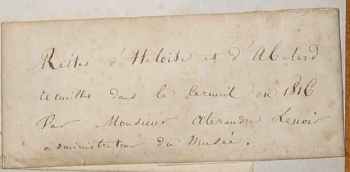 Restes d'Héloïse et d'Abélard
recueillis dans le cercueil en 1816
Par Monsieur Alexandre Lenoir
administrateur du Musée.